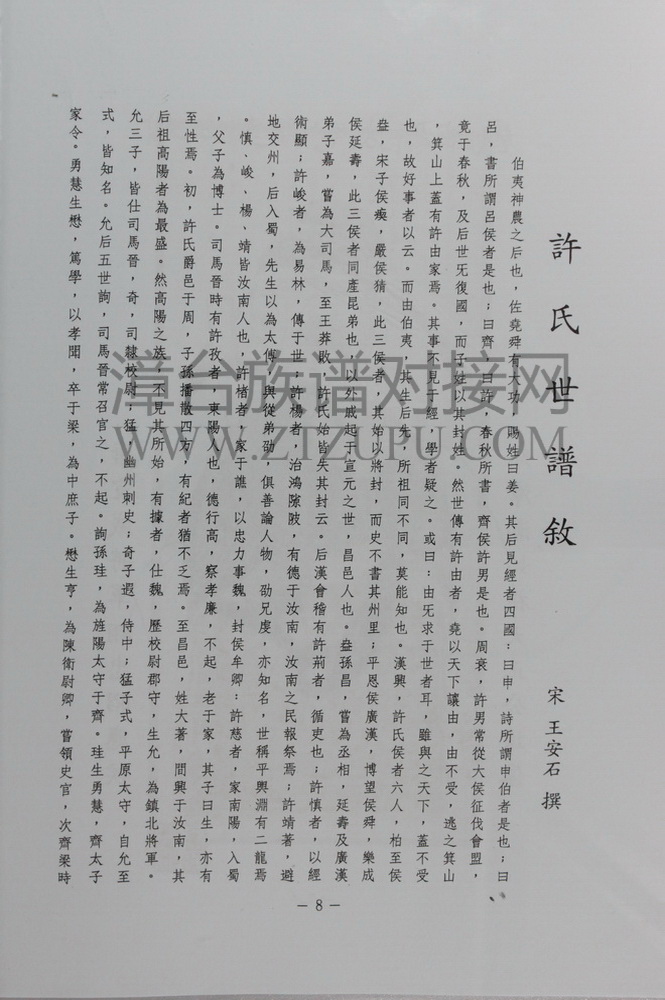 許氏世譜敘
宋 王安石 撰
伯夷神農之后也，佐堯舜有大功，賜姓曰姜。其后見經者四國：曰申，詩所謂申伯者是也；曰
呂，書所謂呂侯者是也；曰齊、曰許，春秋所書，齊侯許男是也。周衰，許男常從大侯征伐會盟，
竟于春秋，及后世旡復國，而子姓以其封姓。然世傳有許由者，堯以天下讓由，由不受，逃之箕山
，箕山上蓋有許由冢焉。其事不見于經，學者疑之。或曰：由旡求于世者耳，雖與之天下，蓋不受
也，故好事者以云。而由伯夷，其生后先，所祖同不同，莫能知也。漢興，許氏侯者六人，柏至侯
盎，宋子侯瘛，嚴侯猜，此三侯者，其始以將封，而史不書其州里；平恩侯廣漢，博望侯舜，樂成
侯延壽，此三侯者同產昆弟也，以外戚起于宣元之世，昌邑人也。盎孫昌，嘗為丞相，延壽及廣漢
弟子嘉，嘗為大司馬，至王莽敗，許氏始皆失其封云。后漢會稽有許荊者，循吏也；許慎者，以經
術顯；許峻者，為易林，傳于世；許楊者，治鴻隙陂，有德于汝南，汝南之民報祭焉；許靖著，避
地交州，后入蜀，先生以為太傅，與從弟劭，俱善論人物，劭兄虔，亦知名，世稱平輿淵有二龍焉
。慎、峻、楊、靖皆汝南人也，許楮者，家于譙，以忠力事魏，封侯牟卿：許慈者，家南陽，入蜀
，父子為博士。司馬晉時有許孜者，東陽人也，德行高，察孝廉，不起，老于家，其子曰生，亦有
至性焉。初，許氏爵邑于周，子孫播散四方，有紀者猶不乏焉。至昌邑，姓大著，間興于汝南，其
后祖高陽者為最盛。然高陽之族，不見其所始，有據者，仕魏，歷校尉郡守，生允，為鎮北將軍。
允三子，皆仕司馬晉，奇，司隸校尉；猛，幽州刺史；奇子遐，侍中；猛子式，平原太守，自允至
式，皆知名。允后五世詢，司馬晉常召官之，不起。詢孫珪，為旌陽太守于齊。珪生勇慧，齊太子
家令。勇慧生懋，篤學，以孝聞，卒于梁，為中庶子。懋生亨，為陳衛尉卿，嘗領史官，次齊梁時
－8－
漳台族谱对接网
WWW.ZTZUPU.COM